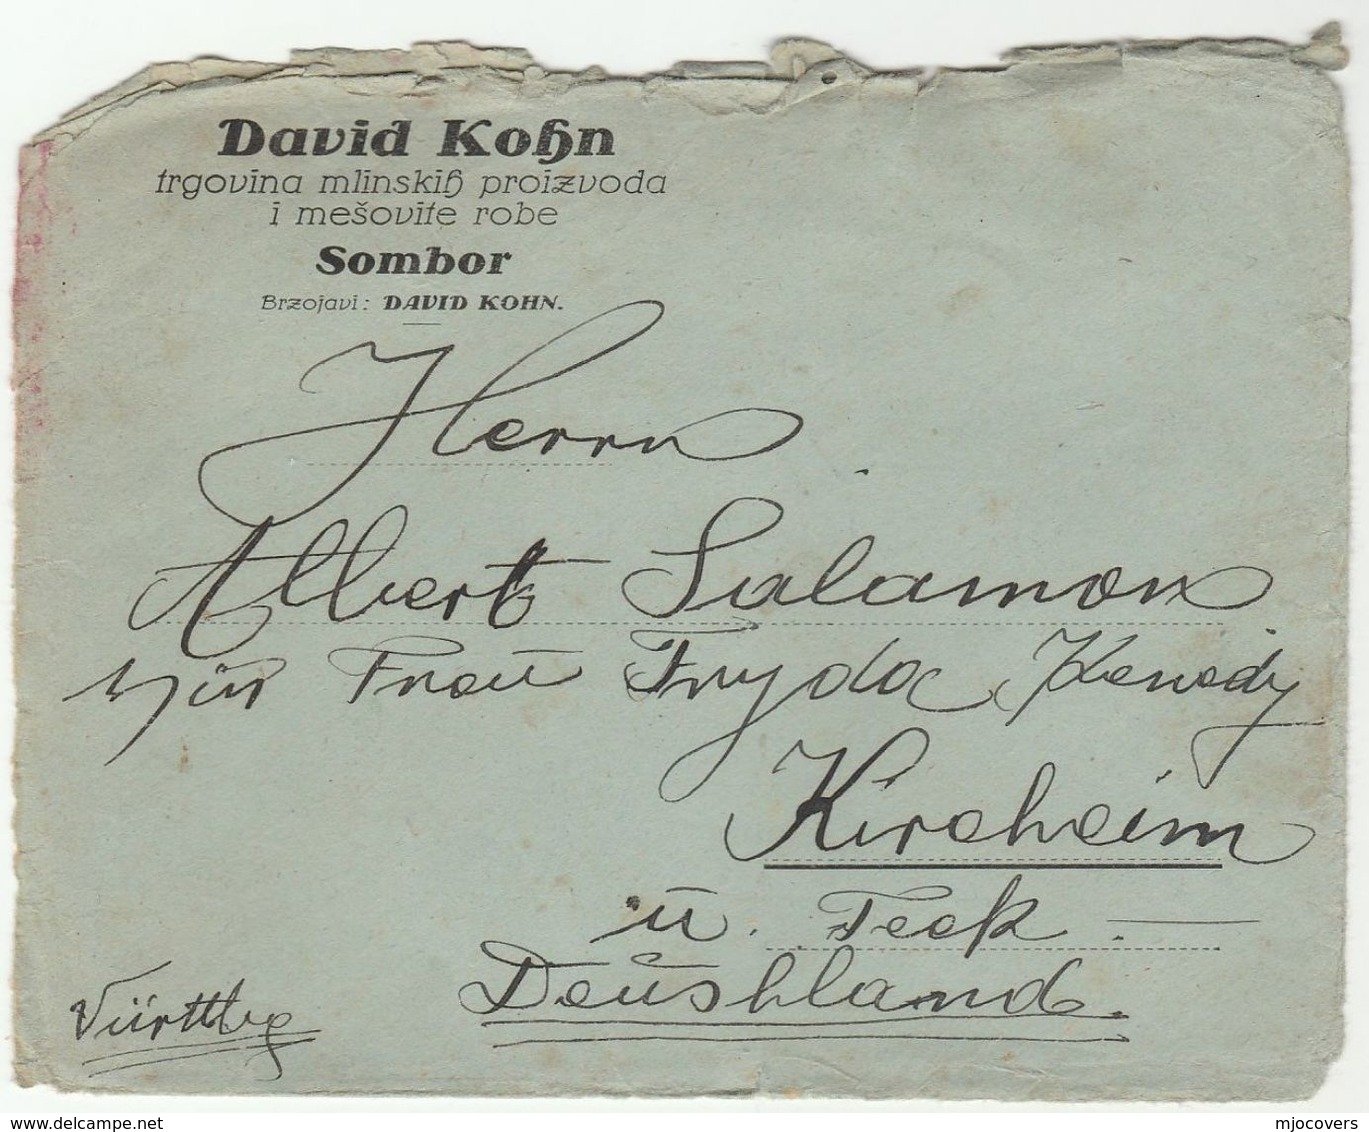 David Kohn
trgovina mlinskih proizvoda
i mešovite robe
Sombor
Brzojavi: DAVID KOHN.
Herrn
Albert Salamon
für Frau Fryda Kenedy
Kircheim
u. Teck
Deushland
Vürttbg
delcampe.net
mjocovers